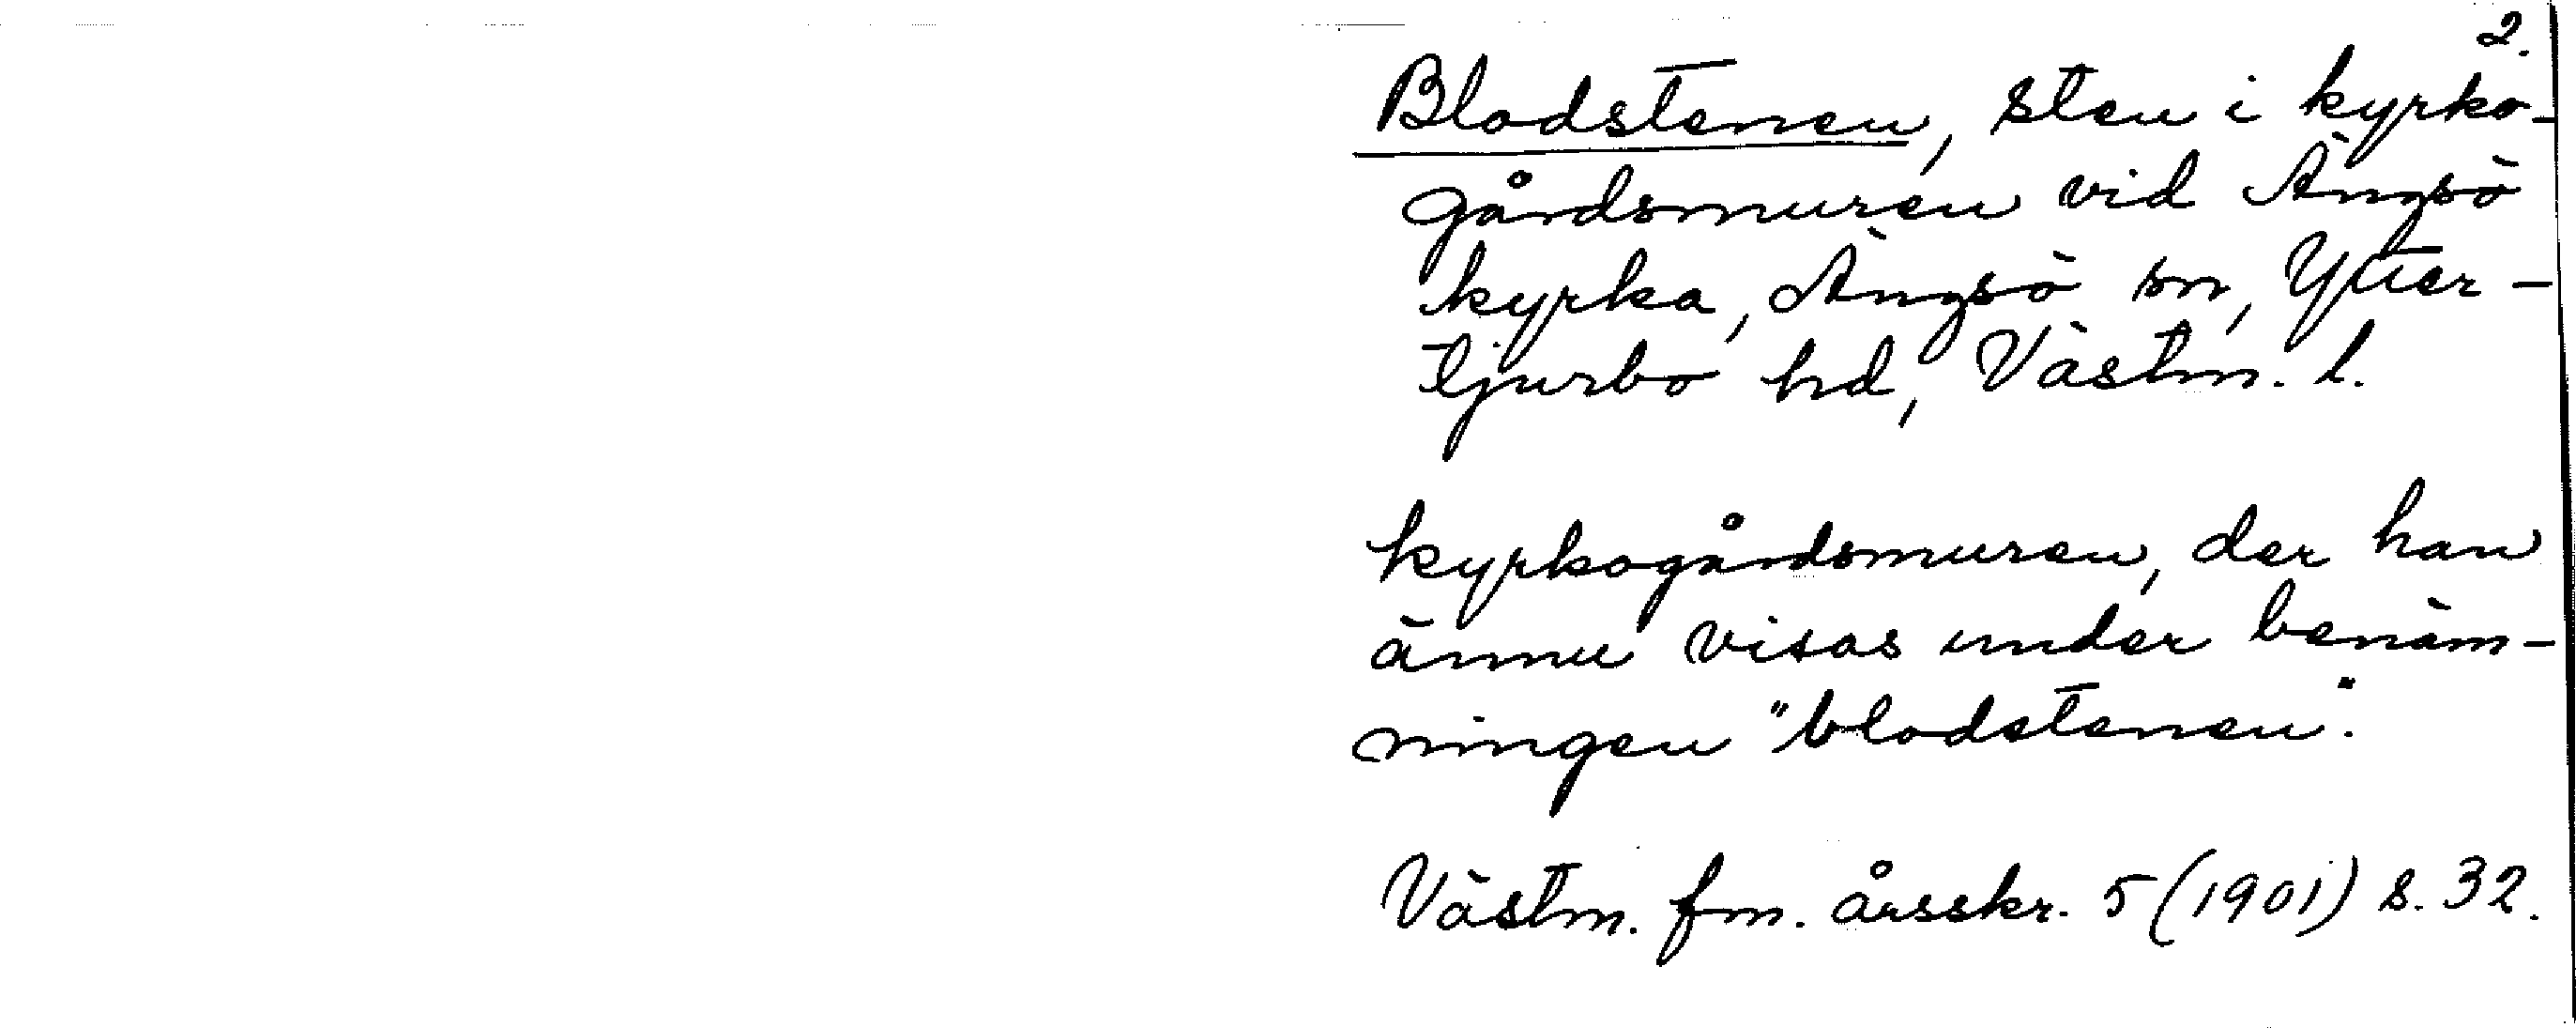 2.
Blodstenen, sten i kyrko-
gårdsmuren vid Ängsö
kyrka, Ängsö sn, Ytter-
tjurbo hd, Västm. l.
kyrkogårdsmuren, der han
ännu visas under benäm-
ningen "blodstenen".
Västm. fm. årsskr. 5 (1901) s. 32.